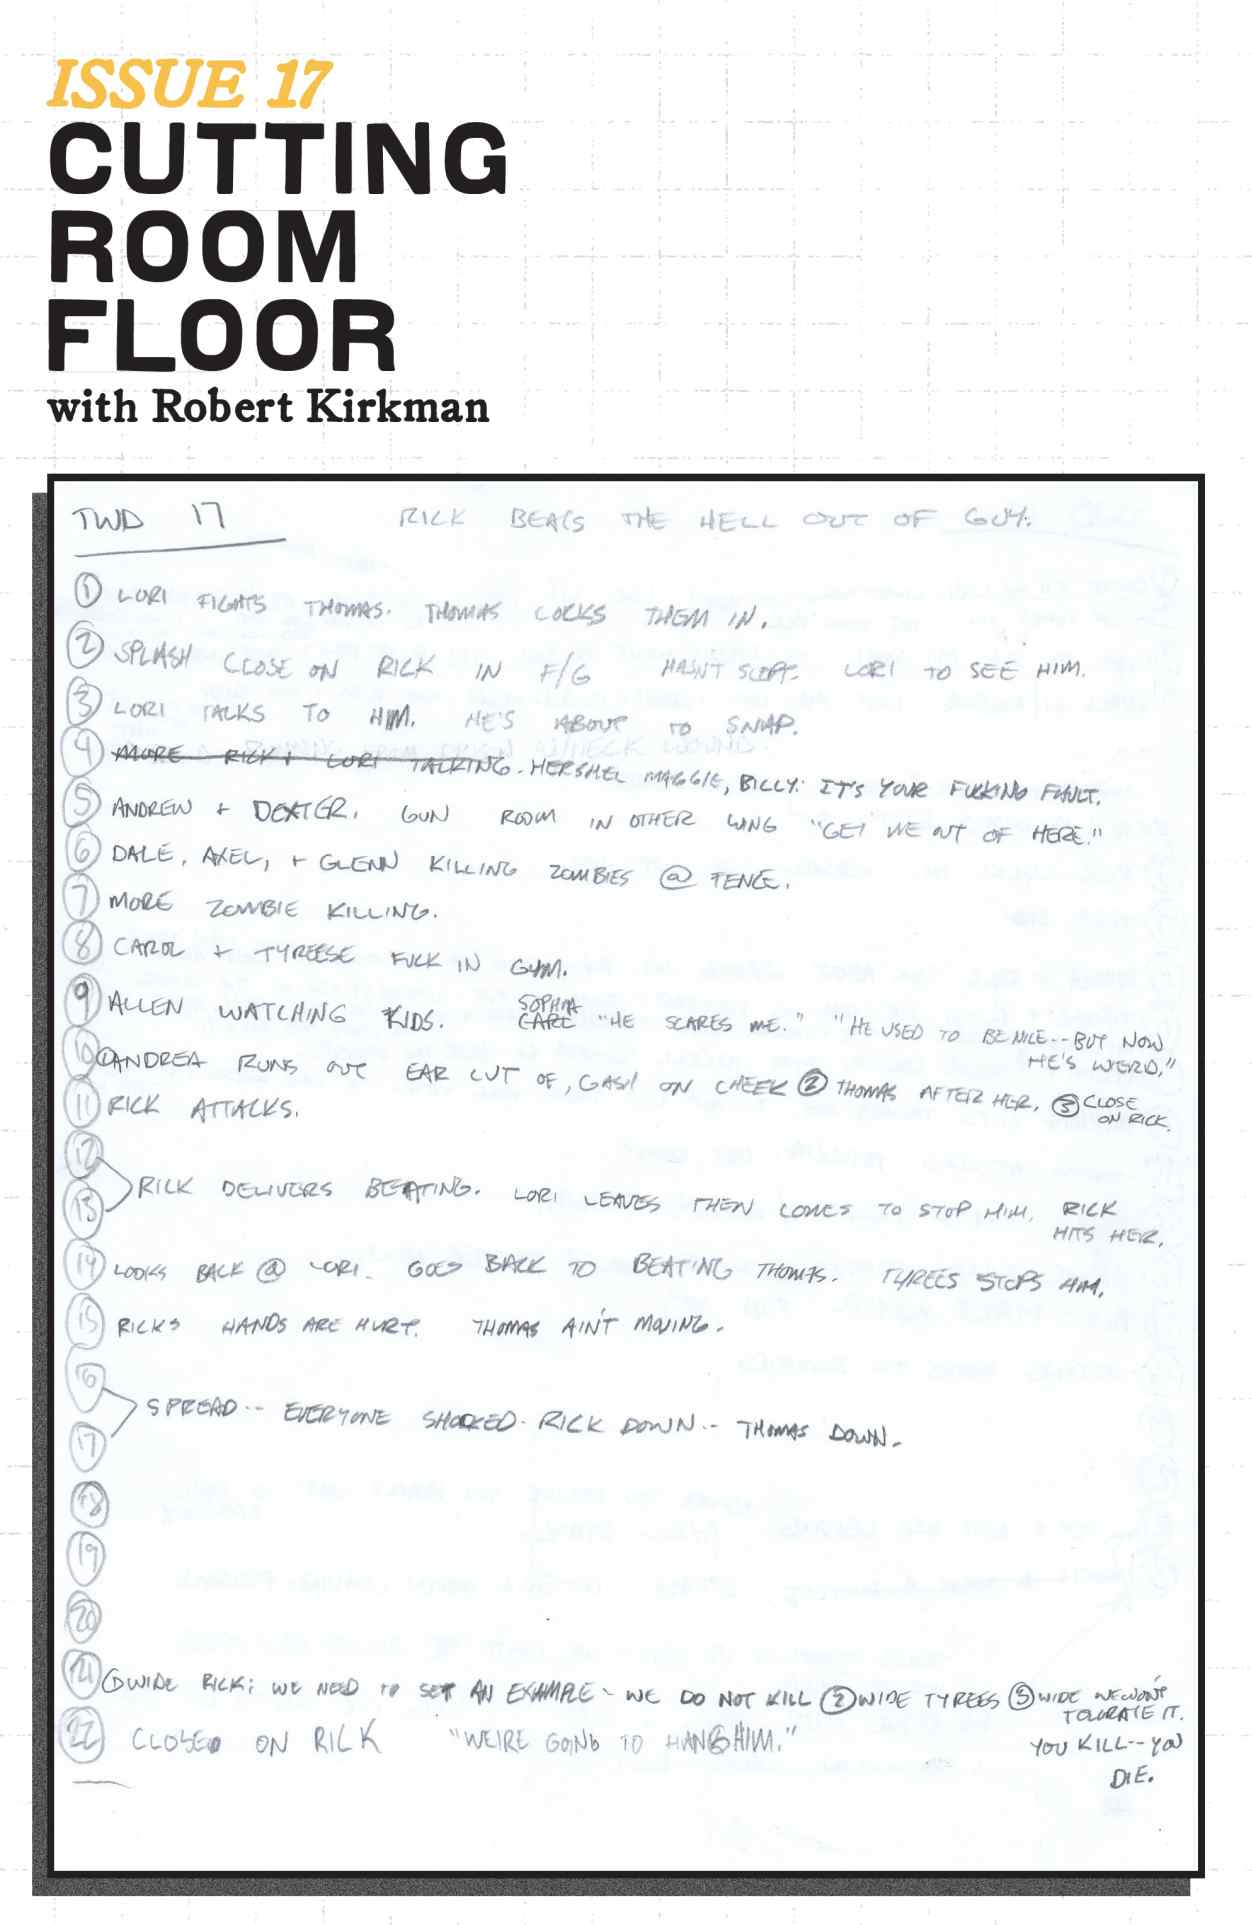 ISSUE 17
CUTTING
ROOM
FLOOR
with Robert Kirkman
TWD 17 RICK BEATS THE HELL OUT OF GUY.
1 LORI FIGHTS THOMAS. THOMAS LOCKS THEM IN.
2 SPLASH CLOSE ON RICK IN F/G HASN'T SLEPT. LORI TO SEE HIM.
3 LORI TALKS TO HIM. HE'S ABOUT TO SNAP.
4 MORE RICK + LORI TALKING. HERSHEL MAGGIE, BILLY. IT'S YOUR FUCKING FAULT.
5 ANDREW + DEXTER. GUN ROOM IN OTHER WING "GET ME OUT OF HERE."
6 DALE, AXEL, + GLENN KILLING ZOMBIES @ FENCE.
7 MORE ZOMBIE KILLING.
8 CAROL + TYREESE FUCK IN GYM.
9 ALLEN WATCHING KIDS. SOPHIA CARL "HE SCARES ME." "HE USED TO BE NICE-- BUT NOW
HE'S WEIRD."
10 1 ANDREA RUNS OUT EAR CUT OF, GASH ON CHEEK 2 THOMAS AFTER HER. 3 CLOSE
ON RICK.
11 RICK ATTACKS.
12
13 RICK DELIVERS BEATING. LORI LEAVES THEN COMES TO STOP HIM. RICK
HITS HER.
14 LOOKS BACK @ LORI. GOES BACK TO BEATING THOMAS. TYREES STOPS HIM.
15 RICKS HANDS ARE HURT. THOMAS AIN'T MOVING.
16
SPREAD-- EVERYONE SHOCKED. RICK DOWN-- THOMAS DOWN.
17
18
19
20
21 1 WIDE RICK: WE NEED TO SET AN EXAMPLE- WE DO NOT KILL 2 WIDE TYREES 3 WIDE WE WON'T
TOLERATE IT.
22 CLOSE ON RICK "WE'RE GOING TO HANG HIM."
YOU KILL-- YOU
DIE.